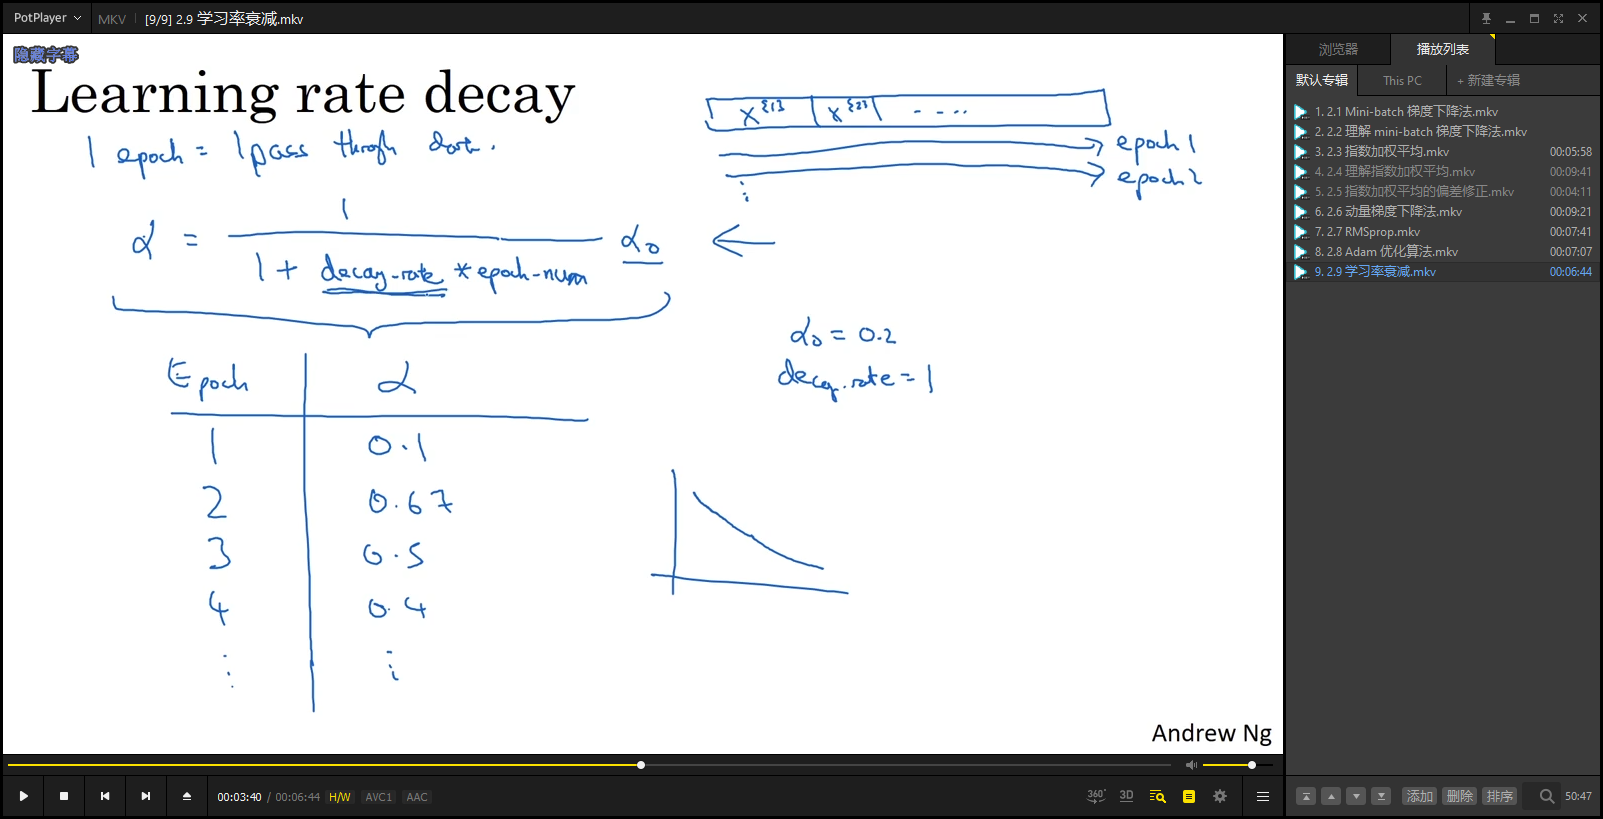 PotPlayer MKV [9/9] 2.9 学习率衰减.mkv
隐藏字幕
Learning rate decay
1 epoch = 1 pass throgh data.
X^{1} X^{2} ....
epoch 1
epoch 2
⋮
α = 1 / (1 + decay-rate * epoch-num) α₀ ←
α₀ = 0.2
decay.rate = 1
Epoch α
1 0.1
2 0.67
3 0.5
4 0.4
⋮ ⋮
Andrew Ng
00:03:40 / 00:06:44 H/W AVC1 AAC
360° 3D
浏览器 播放列表
默认专辑 This PC + 新建专辑
1. 2.1 Mini-batch 梯度下降法.mkv
2. 2.2 理解 mini-batch 梯度下降法.mkv
3. 2.3 指数加权平均.mkv 00:05:58
4. 2.4 理解指数加权平均.mkv 00:09:41
5. 2.5 指数加权平均的偏差修正.mkv 00:04:11
6. 2.6 动量梯度下降法.mkv 00:09:21
7. 2.7 RMSprop.mkv 00:07:41
8. 2.8 Adam 优化算法.mkv 00:07:07
9. 2.9 学习率衰减.mkv 00:06:44
添加 删除 排序 50:47